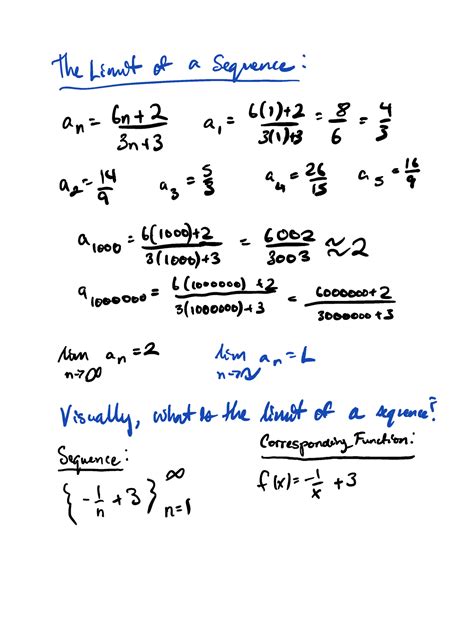 The Limit of a Sequence:
aₙ = (6n+2)/(3n+3) a₁ = (6(1)+2)/(3(1)+3) = 8/6 = 4/3
a₂ = 14/9 a₃ = 5/3 a₄ = 26/15 a₅ = 16/9
a₁₀₀₀ = (6(1000)+2)/(3(1000)+3) = 6002/3003 ≈ 2
a₁₀₀₀₀₀₀ = (6(1000000)+2)/(3(1000000)+3) = (6000000+2)/(3000000+3)
lim n→∞ aₙ = 2 lim n→∞ aₙ = L
Visually, what is the limit of a sequence?
Sequence: Corresponding Function:
{-1/n + 3}^∞ n=1 f(x) = -1/x + 3